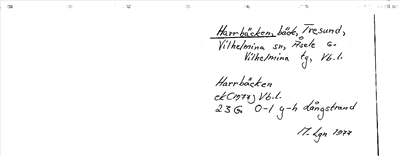 Harrbäcken, bäck, Tresund,
Vilhelmina sn, Åsele G.
Vilhelmina tg, Vb.l.
Harrbäcken
ek (1977) Vb.l.
23G 0-1 g-h Långstrand
M. Lgn 1977